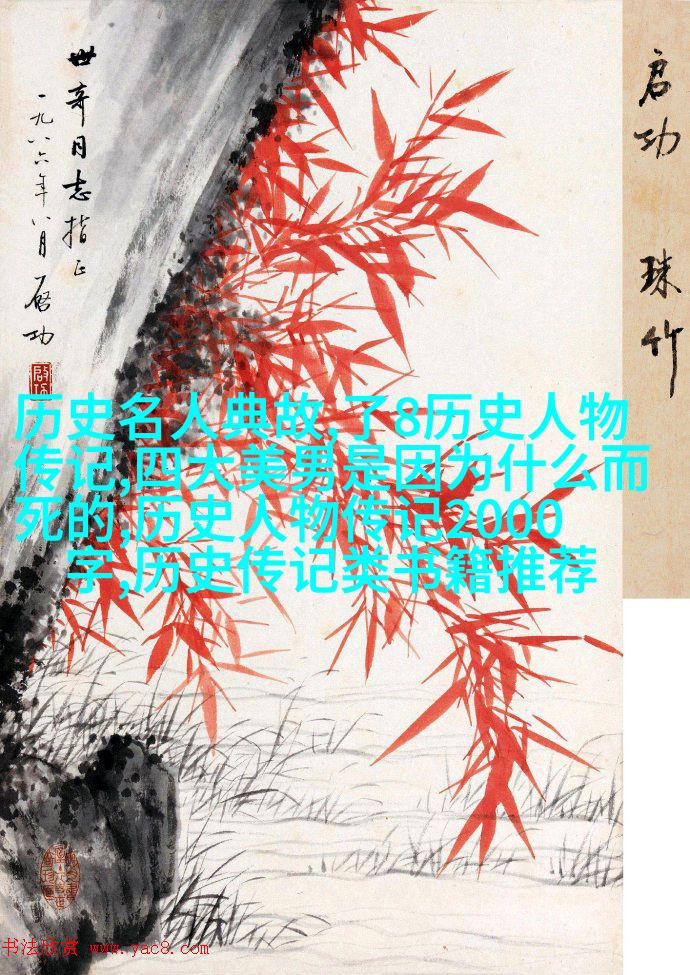 世奇同志指正
一九八六年八月 启功
启功 珠竹
历史名人典故,了8历史人物
传记,四大美男是因为什么而
死的,历史人物传记2000
字,历史传记类书籍推荐
书法欣赏 www.yac8.com